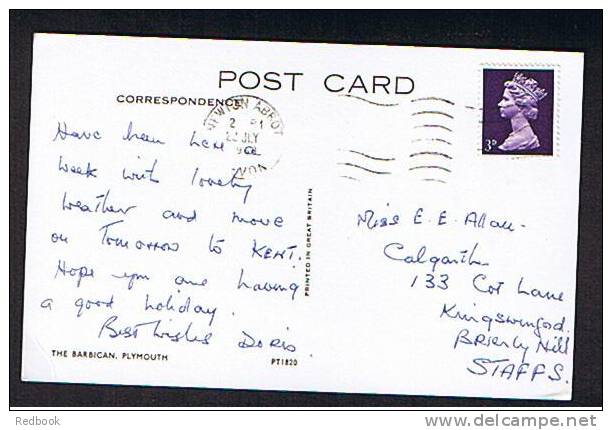 POST CARD
CORRESPONDENCE
NEWTON ABBOT
JLY
3D
Have been here a
week with lovely
weather and move
on Tomorrow to KENT.
Hope you are having
a good holiday.
Best wishes Doris.
PRINTED IN GREAT BRITAIN
Miss E. E. Allan
Calgarth
133 Cot Lane
Kingswinford.
BRIERLY Hill
STAFFS.
THE BARBICAN, PLYMOUTH
PT1820
Redbook
delcampe.net